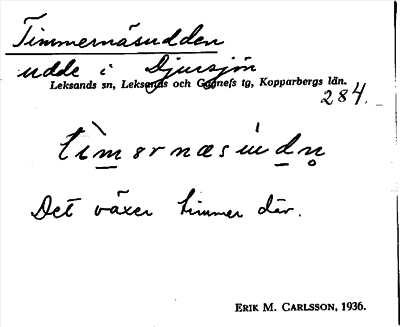 Timmernäsudden
udde i Djursjön
Leksands sn, Leksands och Gagnefs tg, Kopparbergs län.
284.
Det växer timmer där.
ERIK M. CARLSSON, 1936.